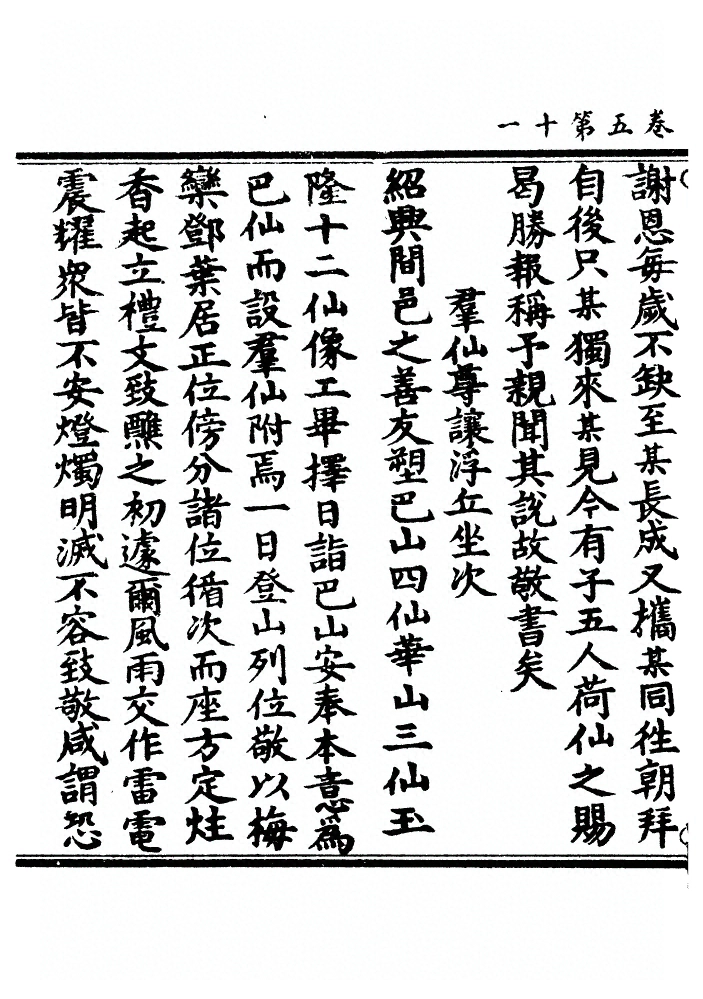 卷五第十一
謝恩每歲不缺至某長成又攜某同徃朝拜
自後只某獨來某見今有子五人荷仙之賜
曷勝報稱予親聞其說故敬書矣
羣仙尊讓浮丘坐次
紹興間邑之善友塑巴山四仙華山三仙玉
隆十二仙像工畢擇日詣巴山安奉本意為
巴仙而設羣仙附焉一日登山列位敬以梅
欒鄧葉居正位傍分諸位循次而座方定炷
香起立禮文致醮之初遽爾風雨交作雷電
震耀衆皆不安燈燭明滅不容致敬咸謂恐